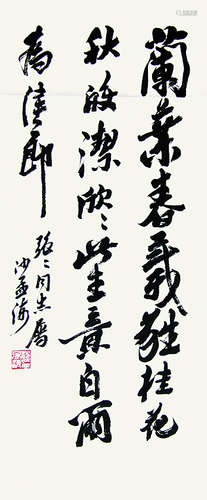 蘭葉春葳蕤桂花
秋皎潔欣〻此生意自爾
為佳節
同志屬
沙孟海